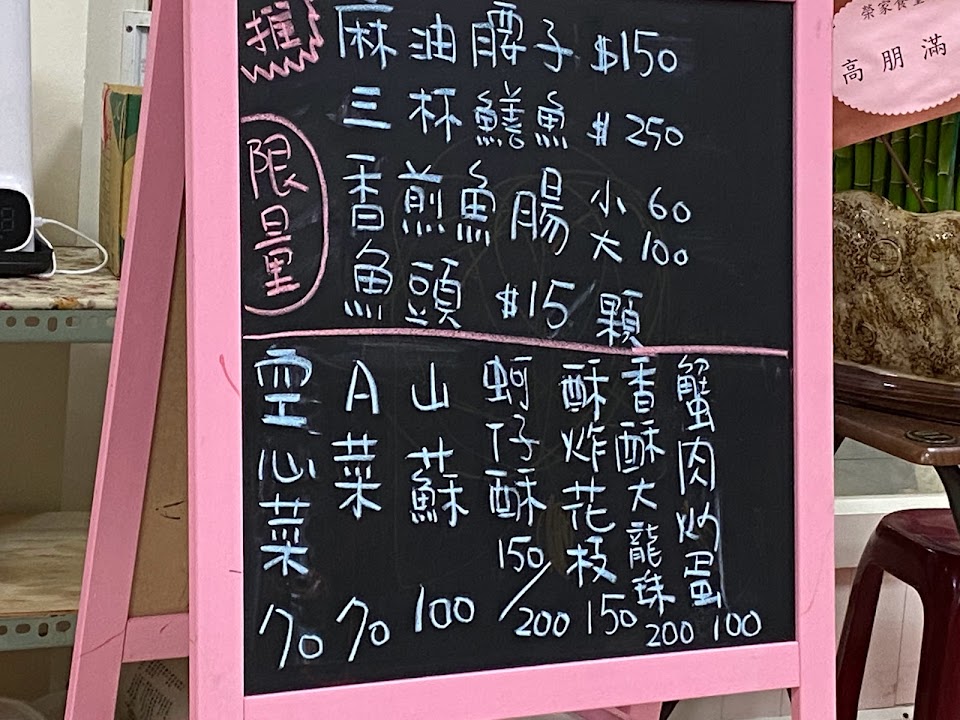 推 麻油腰子 $150
三杯鱔魚 $250
限量 香煎魚腸 小 60
大 100
魚頭 $15/顆
空心菜 70
A菜 70
山蘇 100
蚵仔酥 150/200
酥炸花枝 150
香酥大龍珠 200
蟹肉炒蛋 100
榮家食堂
高朋滿